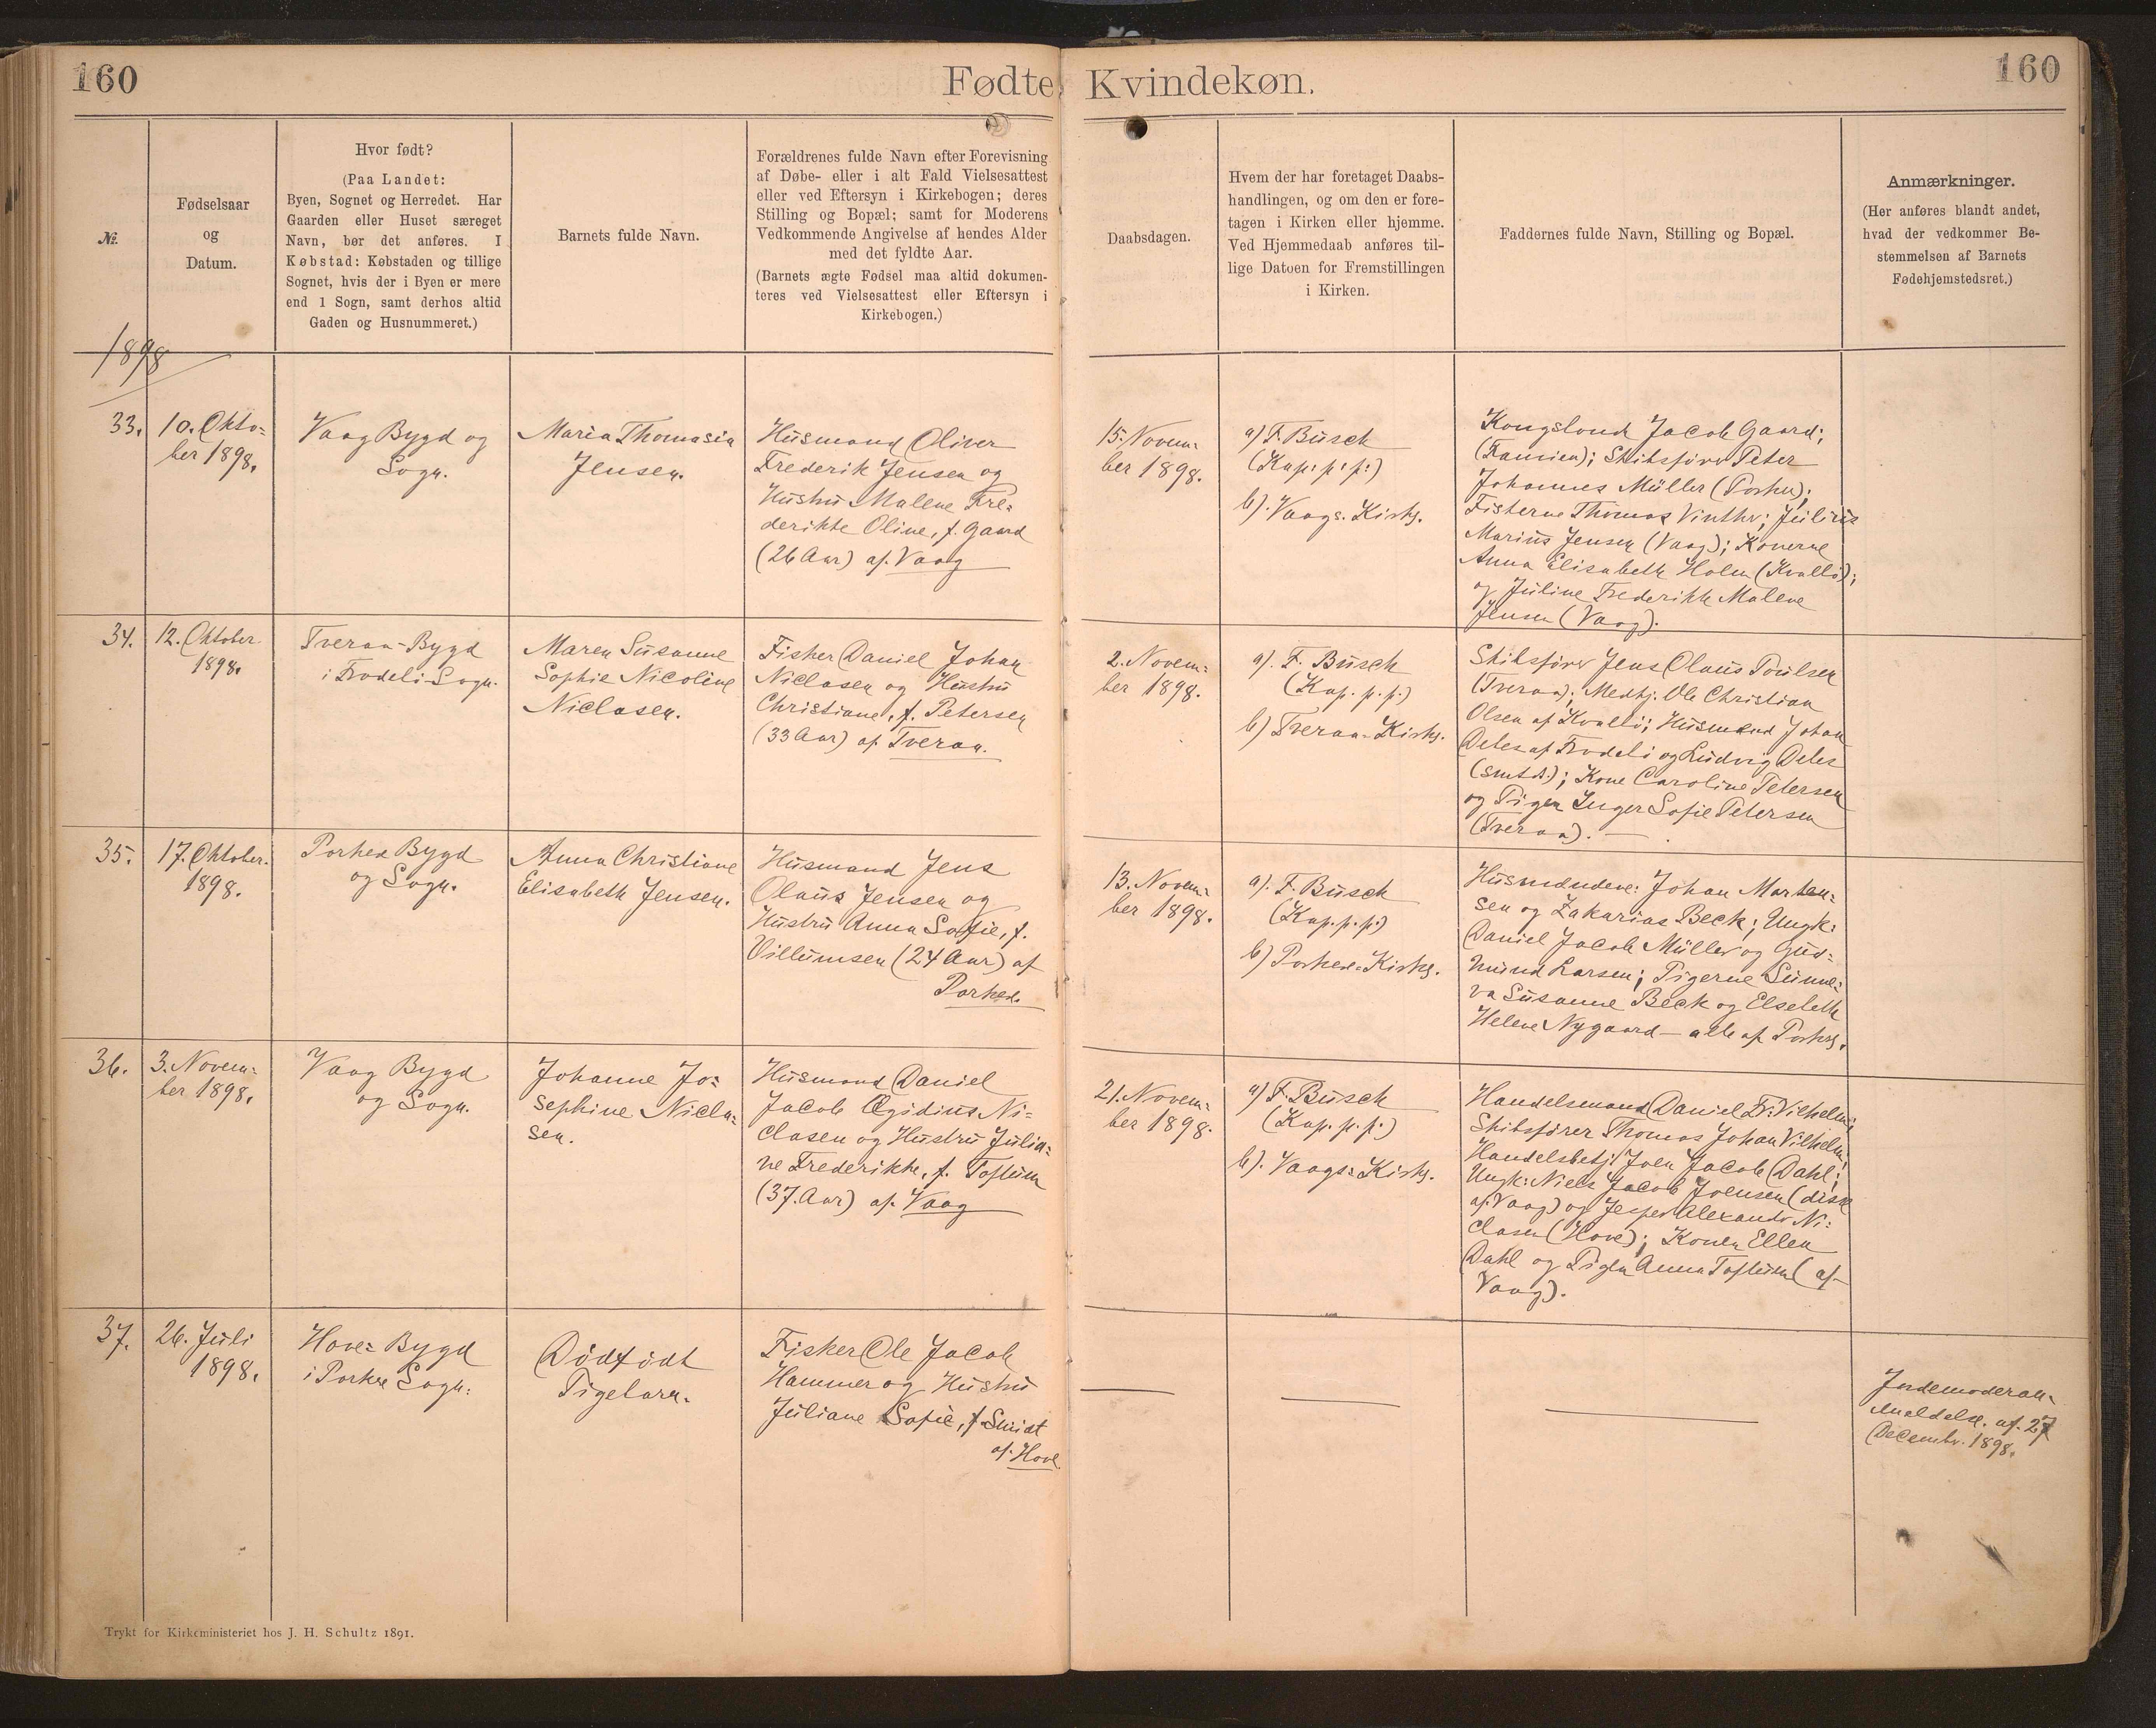 160
Fødte
Kvindekøn.
160
№.
Fødselsaar
og
Datum.
Hvor født?
(Paa Landet:
Byen, Sognet og Herredet. Har
Gaarden eller Huset særeget
Navn, bør det anføres. I
Købstad: Købstaden og tillige
Sognet, hvis der i Byen er mere
end 1 Sogn, samt derhos altid
Gaden og Husnummeret.)
Barnets fulde Navn.
Forældrenes fulde Navn efter Forevisning
af Døbe- eller i alt Fald Vielsesattest
eller ved Eftersyn i Kirkebogen; deres
Stilling og Bopæl; samt for Moderens
Vedkommende Angivelse af hendes Alder
med det fyldte Aar.
(Barnets ægte Fødsel maa altid dokumen-
teres ved Vielsesattest eller Eftersyn i
Kirkebogen.)
Daabsdagen.
Hvem der har foretaget Daabs-
handlingen, og om den er fore-
tagen i Kirken eller hjemme.
Ved Hjemmedaab anføres til-
lige Datoen for Fremstillingen
i Kirken.
Faddernes fulde Navn, Stilling og Bopæl.
Anmærkninger.
(Her anføres blandt andet,
hvad der vedkommer Be-
stemmelsen af Barnets
Fødehjemstedsret.)
1898
33.
10. Okto=
ber 1898.
Vaag Bygd og
Sogn.
Maria Thomasia
Jensen.
Husmand Oliver
Frederik Jensen og
Hustru Malene Fre=
derikke Oline, f. Gaard
(26 Aar) af Vaag
15. Novem=
ber 1898.
a) F. Busch
(Kap: p: p:)
b). Vaags. Kirke.
Kongsbonde Jacob Gaard;
(Famien); Skibsfører Peter
Johannes Müller (Porkere);
Fiskerne Thomas Vinther; Julius
Marius Jensen (Vaag); Konerne
Anna Elisabeth Holm (Kvalbø);
og Juline Frederikke Malene
Jensen (Vaag).
34.
12. Oktober
1898.
Tveraa-Bygd
i Frodebø Sogn.
Maren Susanne
Sophie Nicoline
Niclasen.
Fisker Daniel Johan
Niclasen og Hustru
Christiane, f. Petersen
(33 Aar) af Tveraa.
2. Novem=
ber 1898.
a). F. Busch
(Kap. p. p.)
b) Tveraa=Kirke.
Skibsfører Jens Olaus Poulsen
(Tveraa); Medhj. Ole Christian
Olsen af Kvalbø; Husmænd Johan
Debes af Frodebø og Ludvig Debes
(smtd.); Kone Caroline Petersen
og Pigen Inger Sofie Petersen
(Tveraa). —
35.
17. Oktober.
1898.
Porkere Bygd
og Sogn.
Anna Christiane
Elisabeth Jensen.
Husmand Jens
Olaus Jensen og
Hustru Anna Sofie, f.
Villumsen (24 Aar) af
Porkere.
13. Novem=
ber 1898.
a). F. Busch
(Kap. p. p:)
b) Porkere=Kirke.
Husmændene: Johan Marten=
sen og Zakarias Beck; Ungk:
Daniel Jacob Müller og Gud=
mund Larsen; Pigerne Sunne=
va Susanne Beck og Elsebeth
Helene Nygaard — alle af Porkere.
36.
3. Novem=
ber 1898.
Vaag Bygd
og Sogn.
Johanne Jo=
sephine Nicla=
sen.
Husmand Daniel
Jacob Ægidius Ni=
clasen og Hustru Julia=
ne Frederikke, f. Toftum
(37. Aar) af Vaag
21. Novem=
ber 1898.
a) F. Busch
(Kap. p. p:)
b). Vaags=Kirke.
Handelsmand Daniel Fr: Vilhelm;
Skibsfører Thomas Johan Vilhelm;
Handelsbetj: Joen Jacob Dahl;
Ungk: Niels Jacob Joensen (disse
af Vaag) og Jesper Alexander Ni=
clasen (Hove); Konen Ellen
Dahl og Pigen Anna Toftum (af
Vaag).
37.
26. Juli
1898.
Hove= Bygd
i Porkere Sogn:
Dødfødt
Pigebarn.
Fisker Ole Jacob
Hammer og Hustru
Juliane Sofie, f. Smidt
af Hove
Jordemoderan-
meldelse. af. 27
Decembr. 1898.
Trykt for Kirkeministeriet hos J. H. Schultz 1891.